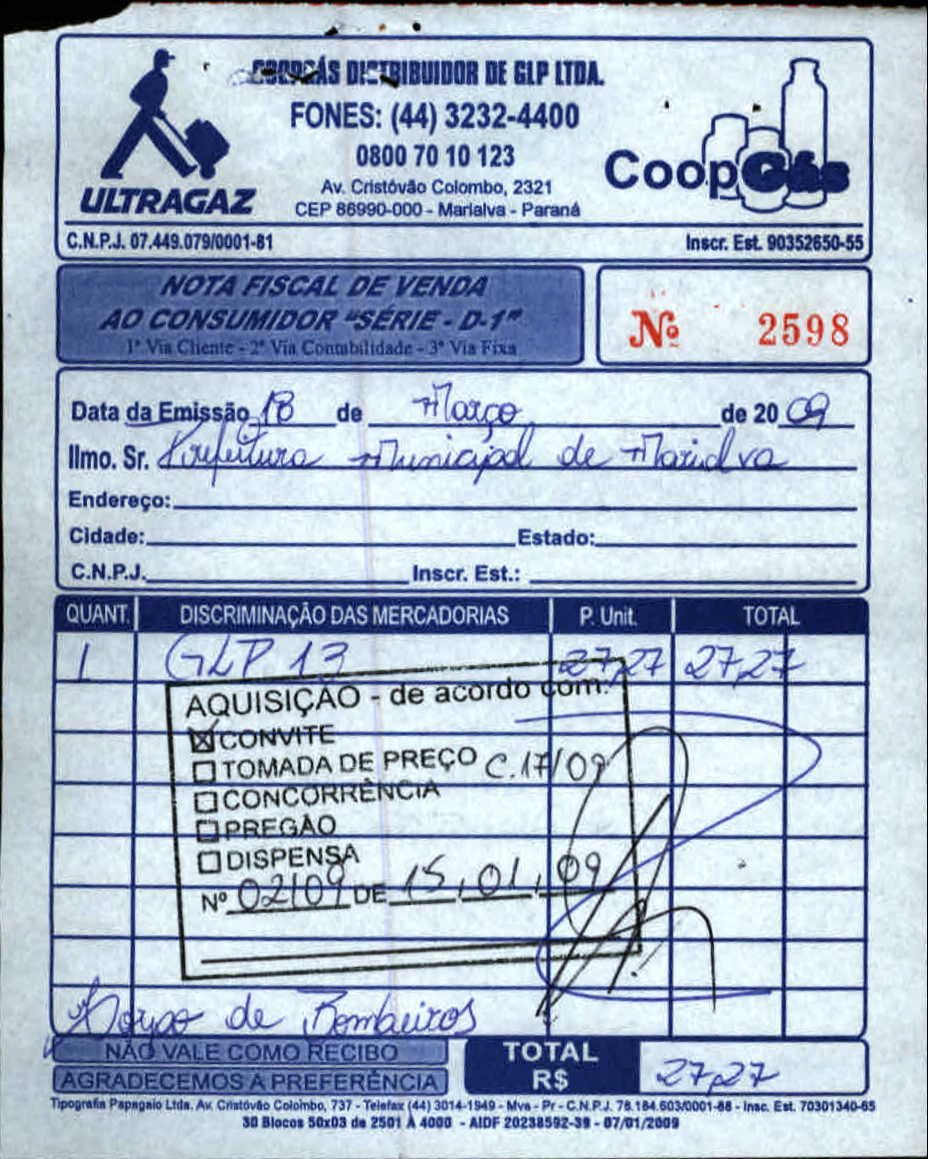 COOPGÁS DISTRIBUIDOR DE GLP LTDA.
FONES: (44) 3232-4400
0800 70 10 123
Av. Cristóvão Colombo, 2321
CEP 86990-000 - Marialva - Paraná
ULTRAGAZ
CoopGás
C.N.P.J. 07.449.079/0001-81 Inscr. Est. 90352650-55
NOTA FISCAL DE VENDA
AO CONSUMIDOR "SÉRIE - D-1"
1ª Via Cliente - 2ª Via Contabilidade - 3ª Via Fixa
Nº 2598
Data da Emissão 18 de Março de 2009
Ilmo. Sr. Prefeitura Municipal de Marialva
Endereço:
Cidade: Estado:
C.N.P.J. Inscr. Est.:
QUANT. DISCRIMINAÇÃO DAS MERCADORIAS P. Unit. TOTAL
1 GLP 13 27,27 27,27
AQUISIÇÃO - de acordo com:
CONVITE
TOMADA DE PREÇO C.17/09
CONCORRÊNCIA
PREGÃO
DISPENSA
Nº 02/09 DE 15, 01, 09
de Bombeiros
NÃO VALE COMO RECIBO
AGRADECEMOS A PREFERÊNCIA
TOTAL
R$ 27,27
Tipografia Papagaio Ltda. Av. Cristóvão Colombo, 737 - Telefax (44) 3014-1949 - Mva - Pr - C.N.P.J. 78.184.603/0001-88 - Insc. Est. 70301340-65
30 Blocos 50x03 de 2501 À 4000 - AIDF 20238592-39 - 07/01/2009